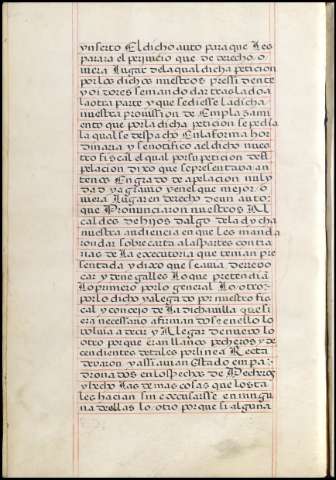 ynserto El dicho auto para que Les
parara el perjuycio que de derecho o
viera Lugar de la qual dicha peticion
por los dichos nuestros pressidente
y oidores se mando dar traslado a
la otra parte y que se diesse la dicha
nuestra provission de Emplazami
ento que por la dicha peticion se pedia
la qual se despacho En la forma hor
dinaria y se notifico a el dicho nues
tro fiscal el qual por su peticion de
pelacion dixo que se presentava an
te nos En grado de apelacion nuly
dad y agravio y en el que mejor o
viera Lugar en derecho de un auto
que Pronunciaron nuestros Al
caldes de hijos dalgo de la dicha
nuestra audiencia en que les manda
ron dar sobre carta a las partes contra
rias de La executoria que tenian pre
sentada y dixo que se avia de revo
car y denegalles Lo que pretendia
Lo primero por lo general Lo otro
por lo dicho y alegado por nuestro fis
cal y concejo de La dicha villa que si
era necessario afirmandose en ello lo
tolvia a decir y Allegar de nuevo lo
otro porque eran llanos pecheros y de
cendientes de tales por linea Recta
de varon y assi avian Estado empa
dronados en los pechos de Pecheros
y hecho Las demas cosas que los ta
les hacian sin escussarsse en ningu
na dellas lo otro porque si alguna